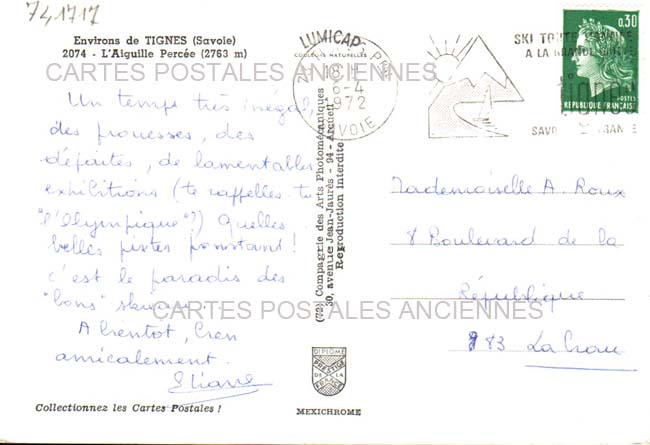 741717
Environs de TIGNES (Savoie)
2074 - L'Aiguille Percée (2763 m)
CARTES POSTALES ANCIENNES
Un temps très inégal,
des prouesses, des
défaites, de lamentables
exhibitions (te rappelles-tu
"l'Olympique"?) Quelles
belles pistes pourtant!
c'est le paradis des
"bons" skieurs.
A bientot, bien
amicalement.
Eliane
Collectionnez les Cartes Postales !
(72) Compagnie des Arts Photomécaniques
30, avenue Jean-Jaurès - 94 - Arcueil
Reproduction Interdite
COULEURS NATURELLES
LUMICAP
18 H
6-4
1972
SAVOIE
SKI TOUTE L'ANNÉE
A LA GRANDE
tignes
SAVOIE FRANCE
0,30
POSTES
REPUBLIQUE FRANÇAISE
Mademoiselle A. Roux
8 Boulevard de la
République
83 La Crau
CARTES POSTALES ANCIENNES
DIPLOME
PRESTIGE
DE LA
FRANCE
MEXICHROME